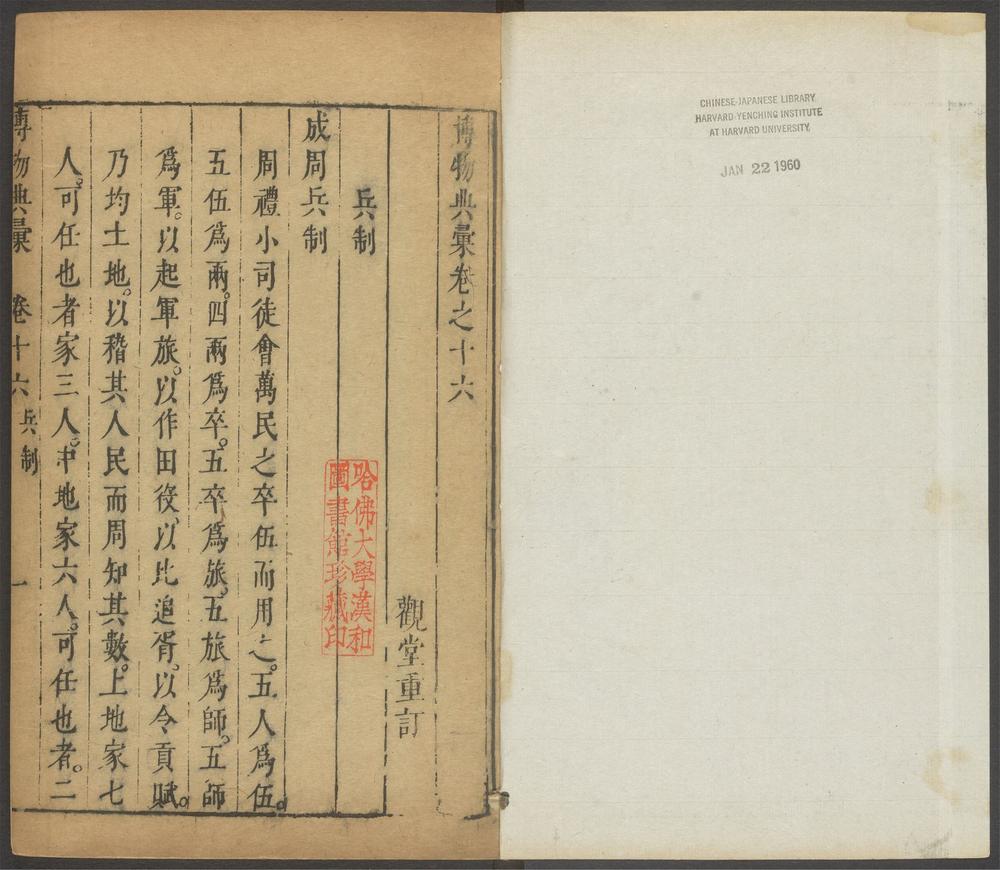 CHINESE-JAPANESE LIBRARY
HARVARD-YENCHING INSTITUTE
AT HARVARD UNIVERSITY
JAN 22 1960
博物典彙卷之十六
觀堂重訂
兵制
哈佛大學漢和
圖書館珍藏印
成周兵制
周禮小司徒會萬民之卒伍而用之。五人爲伍。
五伍爲兩。四兩爲卒。五卒爲旅。五旅爲師。五師
爲軍。以起軍旅。以作田役。以比追胥。以令貢賦。
乃均土地。以稽其人民而周知其數。上地家七
人。可任也者家三人。中地家六人。可任也者。二
博物典彙 卷十六 兵制 一